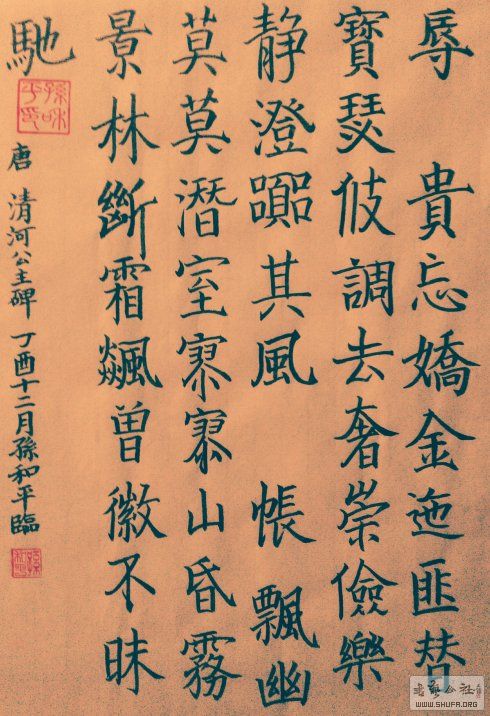 辱 貴忘嬌金迤匪替
寶瑟伎調去奢崇儉樂
靜澄躁其風 帳飄幽
莫莫潛室寥寥山昏霧
景林斷霜飆曾徽不昧
馳
唐 清河公主碑 丁酉十二月孫和平臨
孫和平印
書藝公社
WWW.SHUFA.ORG